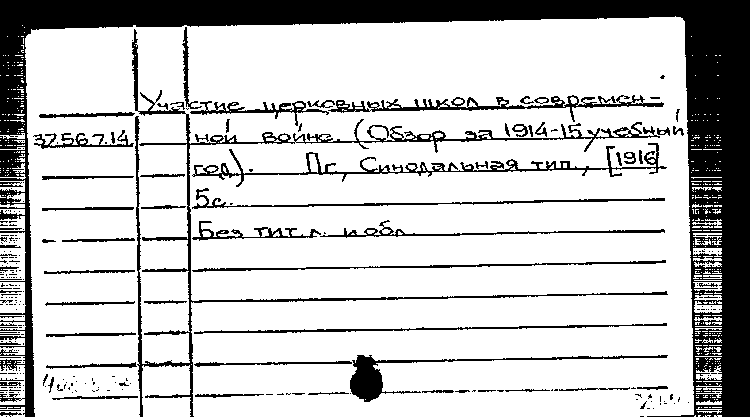 Участие церковных школ в современ-
37.56.7.14. ной войне. (Обзор за 1914-15 учебный
год). Пг., Синодальная тип., [1916]
5с.
Без тит.л. и обл.